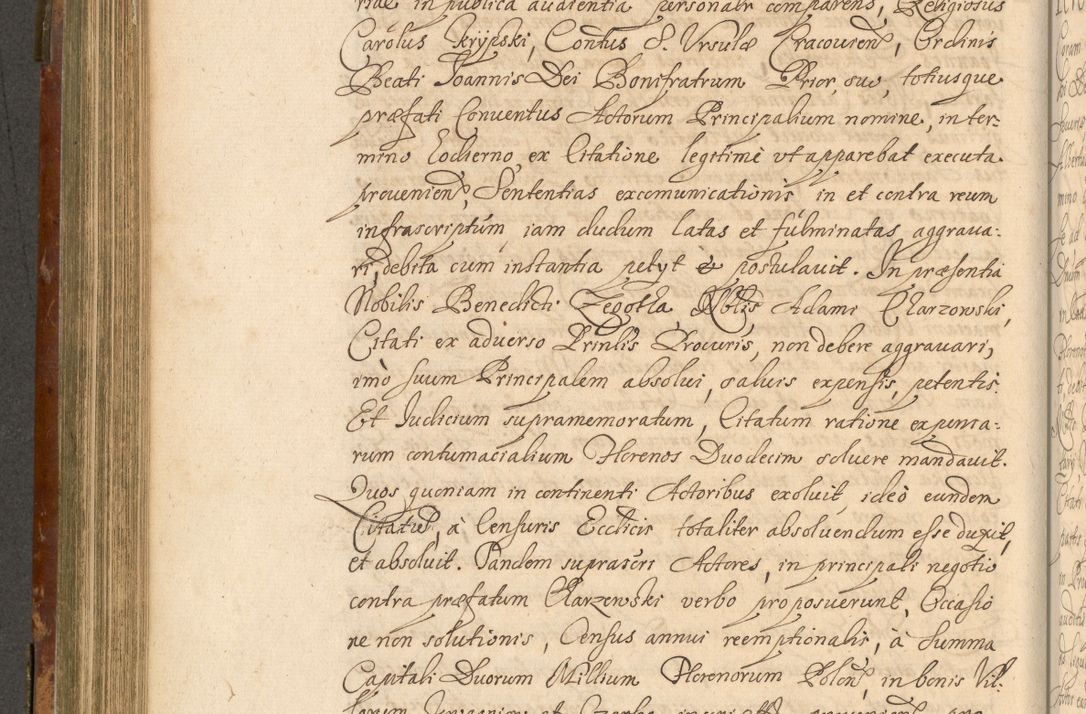 riae in publica audientia personalr comparens, Religiosus
Carolus Skrypski, Contus S. Vrsulæ Cracouien, Ordinis
Beati Joannis Dei Bonifratrum Prior, suo, totiusque
præfati Conuentus Actorum Principalium nomine, in ter=
mino hodierno, ex Citatione legitime vt apparebat executa
prouenien, Sententias excomunicationis in et contra reum
infrascriptum, iam dudum latas et fulminatas, aggraua=
ri, debita cum instantia petyt & postulauit. In præsentia
Nobilis Benedicti Zegotka Nblis Adami Charzowski,
Citati ex aduerso Prinlis Procuris, non debere aggrauari,
imò suum Principalem absolui, saluis expensis, petentis
Et Judicium supramemoratum, Citatum ratione expensa=
rum contumacialium Florenos Duodecim soluere mandauit.
Quos quoniam in continenti Actoribus exoluit, ideò eundem
Citatum, à Censuris Ecclicis totaliter absoluendum esse duxit,
et absoluit. Tandem suprascri Actores, in principali negotio
contra præfatum Charzewski verbo proposuerunt, Occasio
ne non solutionis, Census annui reemptionalis, à Summa
Capitali Duorum Millium Florenorum Polon, in bonis Vil=